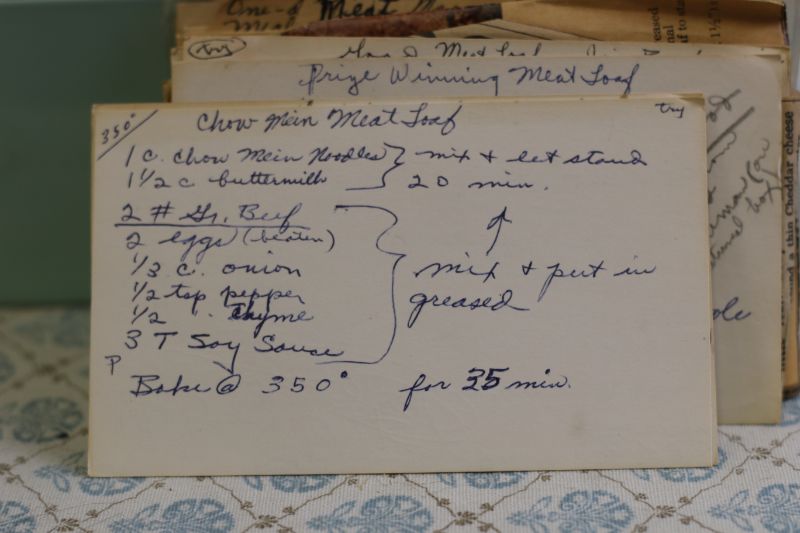 One-d Meat
eased
(try)
Meat Loaf
1½")
Prize Winning Meat Loaf
350°
Chow Mein Meat Loaf
try
1 c. Chow Mein Noodles } mix & let stand
1½ c buttermilk } 20 min.
2 # Gr. Beef
2 eggs (beaten)
⅓ c. onion
½ tsp pepper
½ . thyme
3 T Soy Sauce
mix & put in
greased
P
Bake @ 350° for 35 min.
a thin Cheddar cheese
box